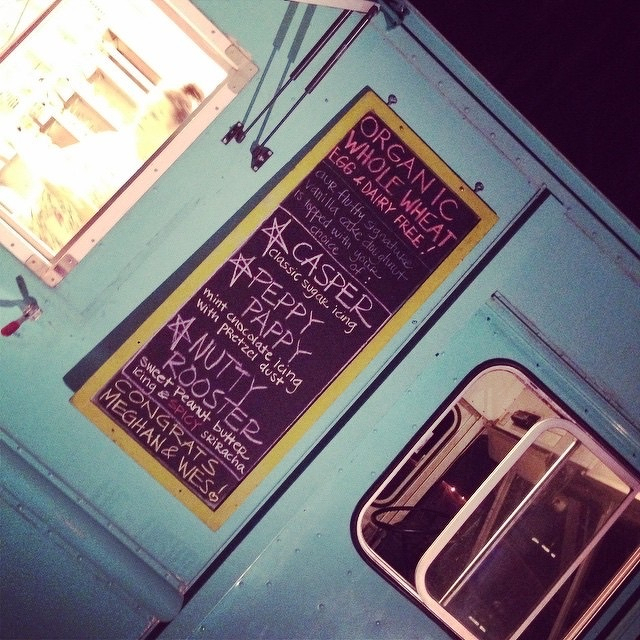 ORGANIC
WHOLE WHEAT
EGG & DAIRY FREE!
our fluffy signature
vanilla cake doughnut
is topped with your
choice of:
CASPER
classic sugar icing
PEPPY
PAPPY
mint chocolate icing
with pretzel dust
NUTTY
ROOSTER
sweet peanut butter
icing & SPICY sriracha
CONGRATS
MEGHAN & WES!